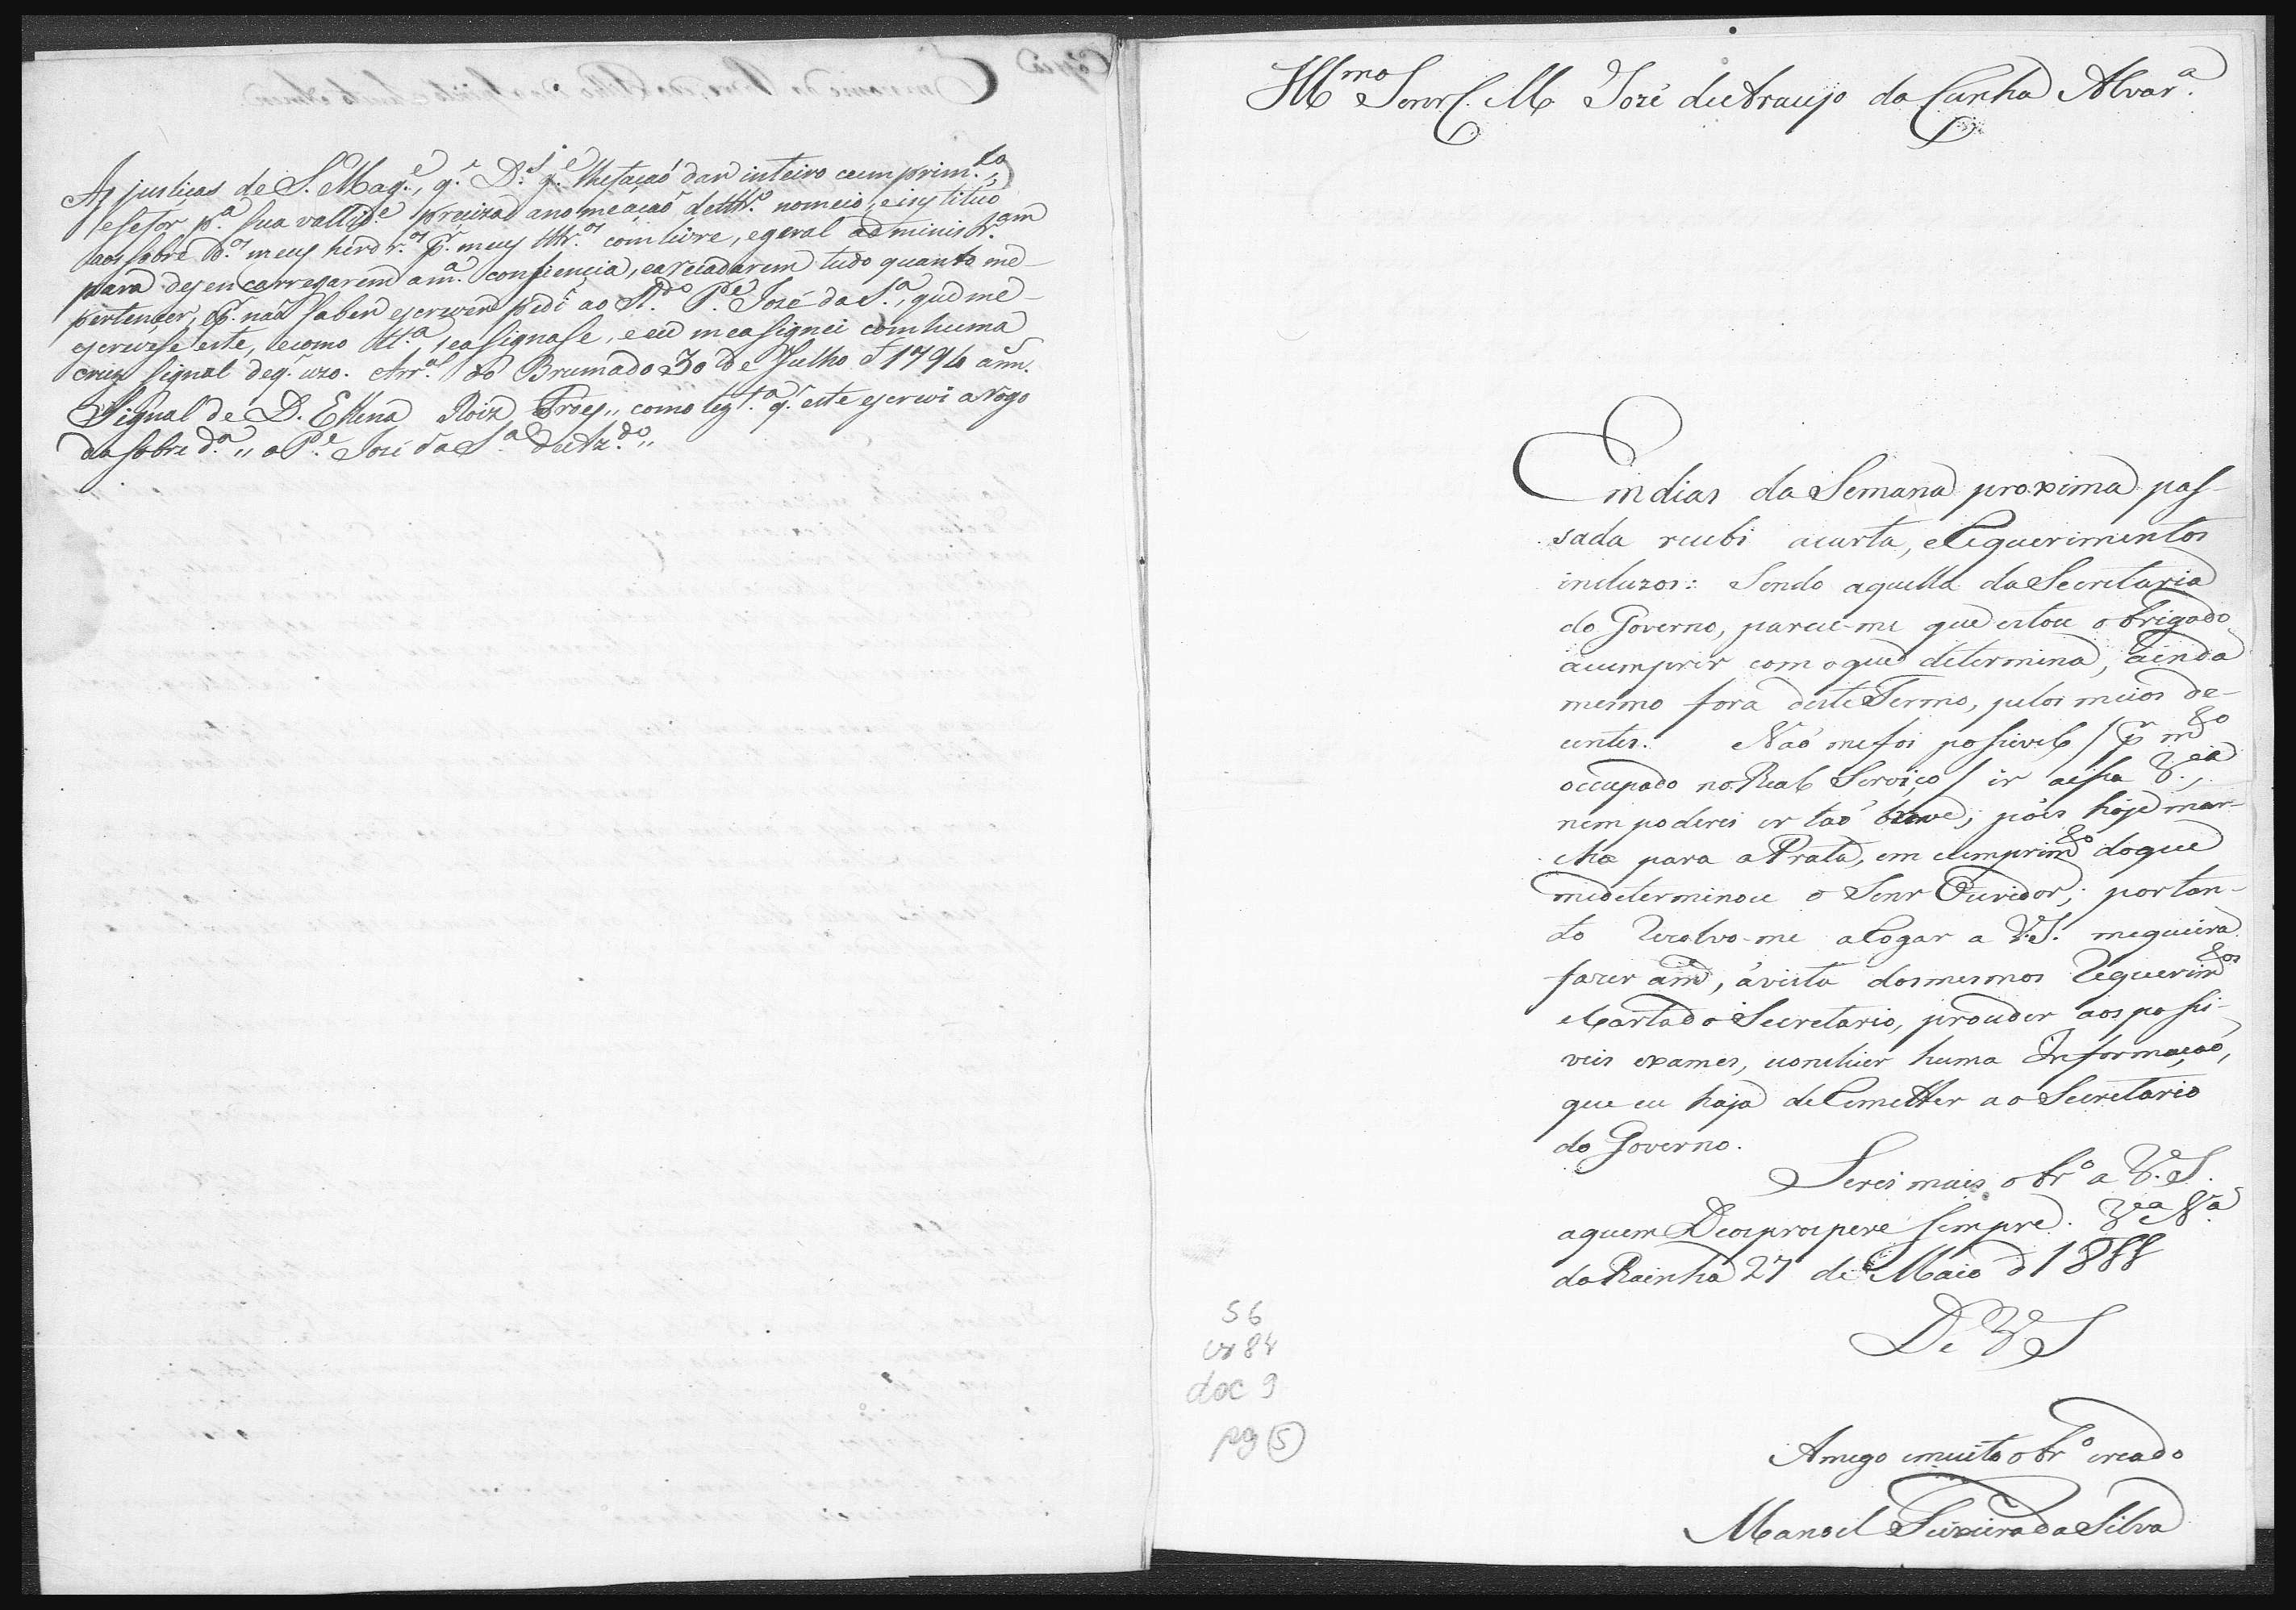 As justiças de S. Mag.e, q.' D.s g.e lhe façaõ dar inteiro cumprim.to,
e se for p.a sua vallid.e preciza a nomeaçaõ de Ttr.o nomeio, e instituo
aos sobre d.os meus herdr.os p.r meus Ttr.os com livre, e geral administr.am
para desencarregarem a m.a consiencia, e arecadarem tudo quanto me
pertencer, e p.r naõ saber escrever pedi ao R.do P.e José da S.a, que me
escrevese este, e como tt.a, e asignase, e eu me asignei com huma
cruz signal de q.' uzo. Arr.al do Brumado 30 de Julho d 1794 ann.s
Signal de D. Ellena Roiz Froes,, como test.a q.' este escrevi a rogo
da sobre d.a ,, o P.e José da S.a de Az.do ,,
Illmo Senr C. M. José de Araujo da Cunha Alvar.a
Em dias da Semana proxima pas-
sada recebi a carta, e Requerimentos
incluzos: Sendo aquella da Secretaria
do Governo, parece-me que estou obrigado
a cumprir com o que determina, ainda
mesmo fora deste Termo, pelos meios de-
centes. Naõ me foi possivel / p.r m.to
occupado no Real Serviço / ir a essa V.ea,
nem poderei ir taõ breve; pois hoje mar-
cho para a Prata, em cumprim.to do que
me determinou o Senr Ouvidor; portan-
to Rezolvo-me a Rogar a V.S. me queira
fazer a m.ce, á vista dos mesmos Requerim.tos
e Carta do Secretario, proceder aos possi-
veis exames, e conceber huma Informaçaõ,
que eu haja de Remetter ao Secretario
do Governo.
Serei mais obr.o a V.S.
a quem Deos prospere sempre. V.ea N.a
da Rainha 27 de Maio d 1811
De V S
Amigo e muito obr.o creado
Manoel Teixeira da Silva
56
cx 84
doc 9
pg 5